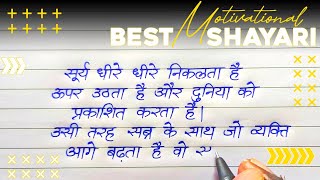 Motivational
BEST SHAYARI
सूर्य धीरे धीरे निकलता है
ऊपर उठता है और दुनिया को
प्रकाशित करता है।
उसी तरह सब्र के साथ जो व्यक्ति
आगे बढ़ता है वो